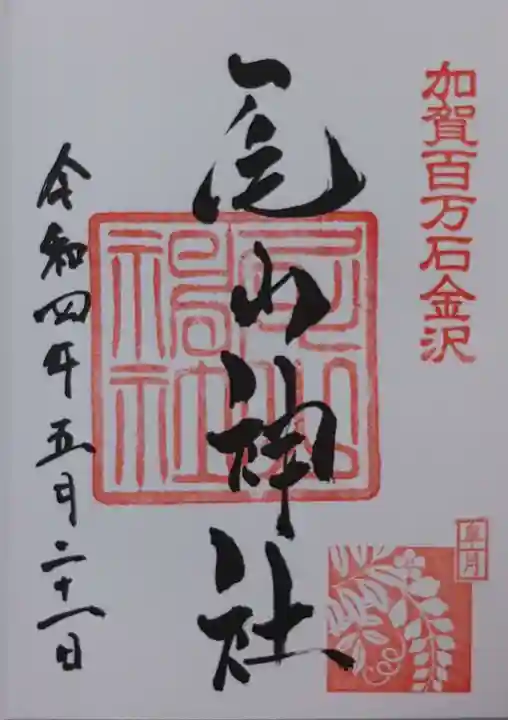 加賀百万石金沢
尾山神社
皐月
令和四年五月二十一日